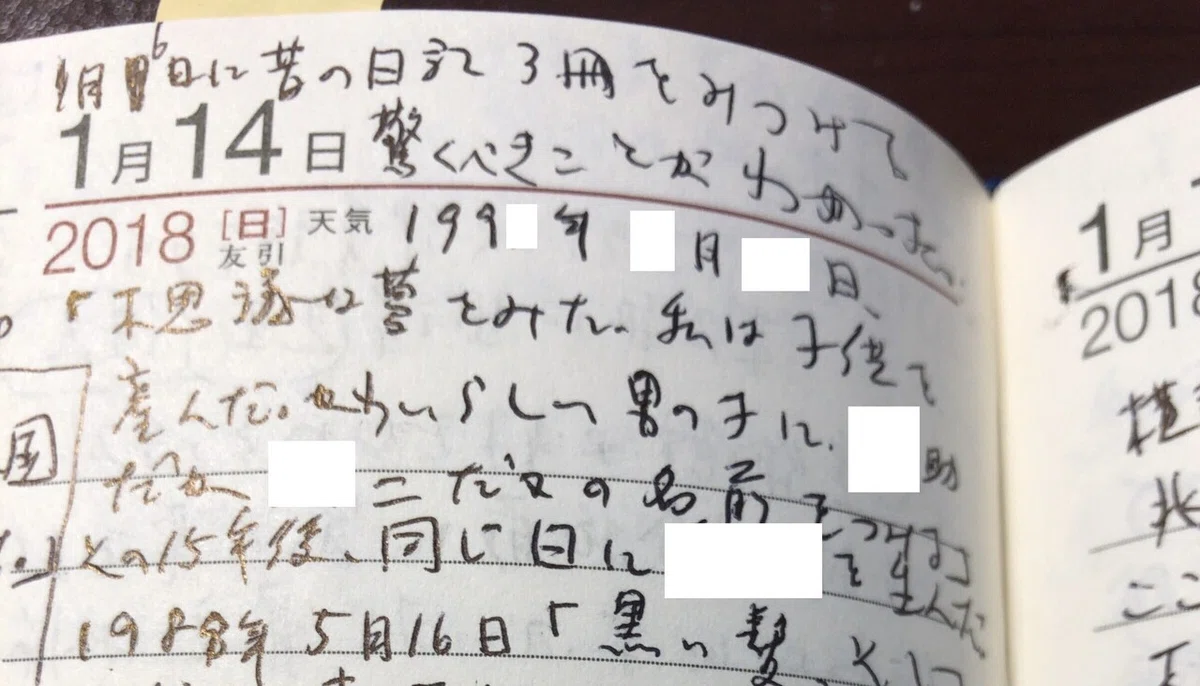 1月6日に昔の日記3冊をみつけて
1月14日 驚くべきことがわかった。
2018 [日] 友引 天気 199 年 月 日、
「不思議な夢をみた。私は子供を
産んだ。かわいらしい男の子に、 助
だか 二だかの名前をつけた」
その15年後、同じ日に を生んだ
1988年5月16日「黒い髪
国
1月
2018
ここ